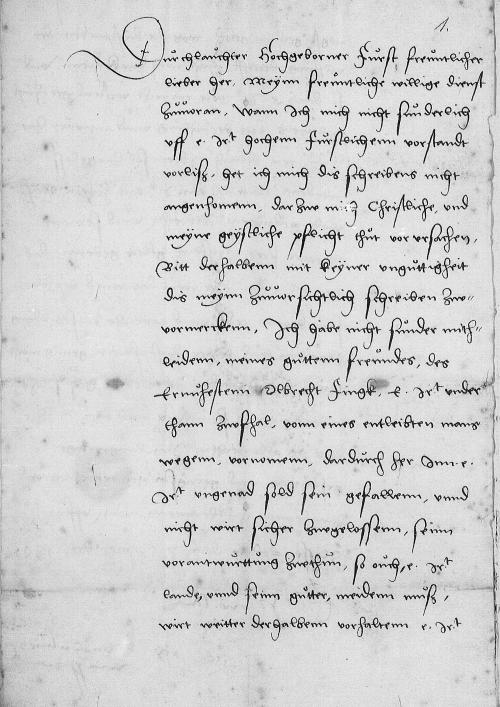 1.
Durchlauchter Hochgeborner Furst freuntlicher
lieber her, Meynn freuntliche willige dienst
zuuoran, Wann Ich mich nicht sunderlich
vff e. Irt hochem Furstlichenn vorstandt
vorließ, het ich mich dis schreibens nicht
angenhomenn, dar zw mich Christliche, vnd
meyne geystliche pflicht thut vorvrsachen,
Bitt derhalbenn mit keyner vnguttigheit
dis meynn zuuorsichtlich schreiben zw-
vormerckenn, Ich habe nicht sunder mith-
leidenn, meines guttenn freundes, des
Ernuhestenn Olbrecht Fingk, E. Irt vnder
thann zwfhal, vonn eines entleibten mans
wegenn, vornomenn, dardurch her Inn e.
Irt vngenad sold sein gefallenn, vnnd
nicht wirt sicher zwgelossenn, seinn
vorantwurttung zwthun, so ouch, e. Irt
lande, vnnd seinn gutter, meidenn muß,
wirt weitter derhalbenn vorhaltenn e. Irt